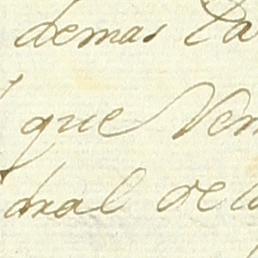 demas
que Ven
dral de